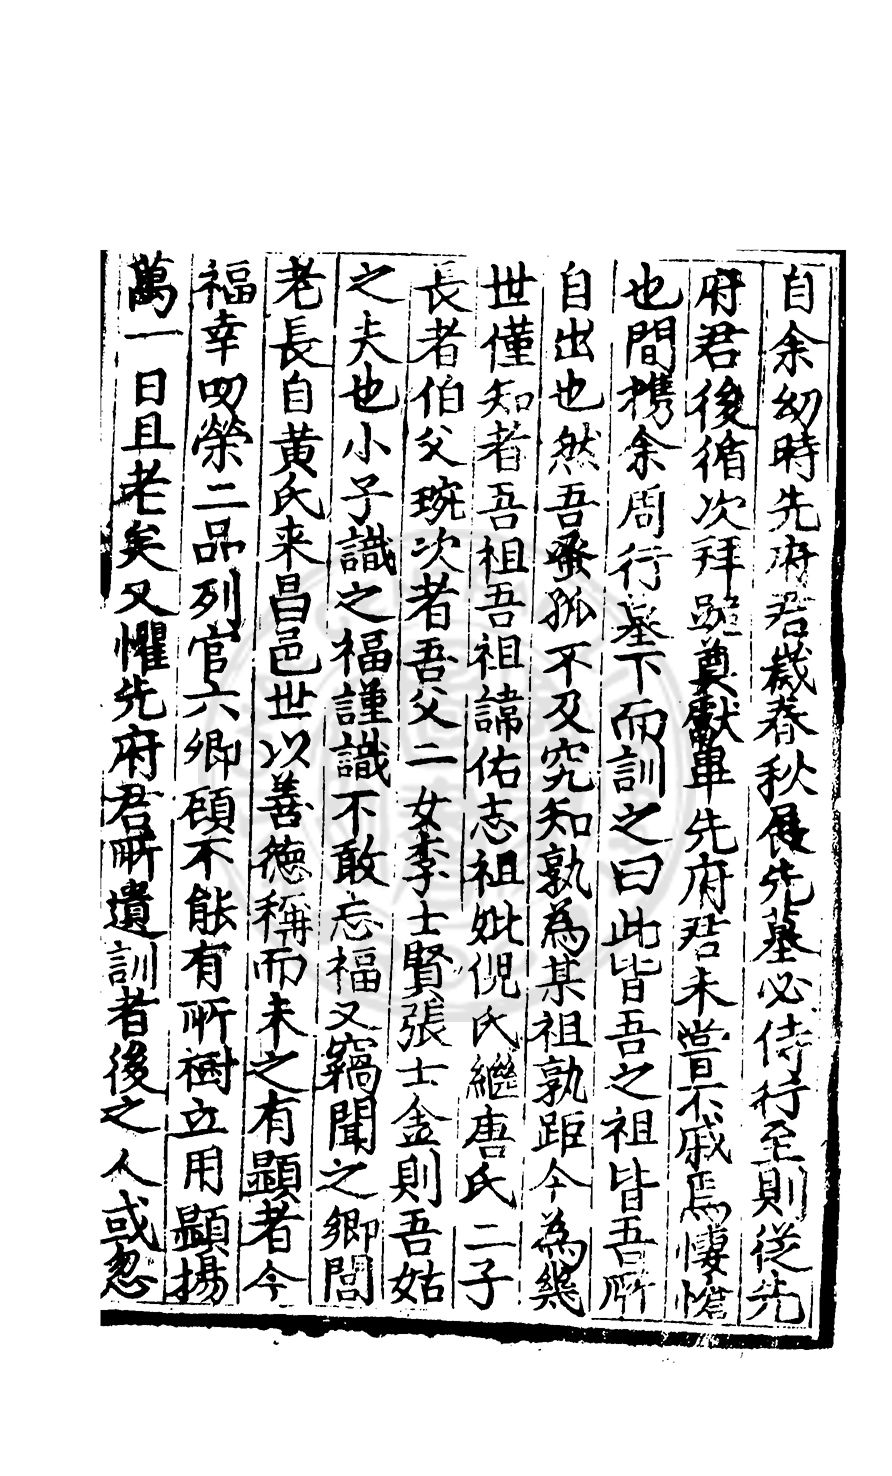 自余幼時先府君歲春秋展先墓必侍行至則從先
府君後循次拜跪奠獻畢先府君未嘗不戚焉悽愴
也間携余周行墓下而訓之曰此皆吾之祖皆吾所
自出也然吾蚤孤不及究知孰為某祖孰距今為幾
世僅知者吾祖吾祖諱佑志祖妣倪氏繼唐氏二子
長者伯父琬次者吾父二女李士賢張士金則吾姑
之夫也小子識之福謹識不敢忘福又竊聞之鄉閭
老長自黄氏来昌邑世以善德稱而未之有顯者今
福幸叨榮二品列官六卿頋不能有所樹立用顯揚
萬一日且老矣又懼先府君所遺訓者後之人或忽